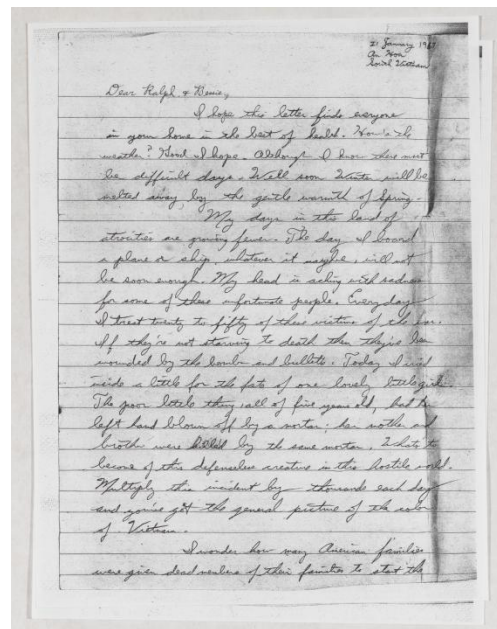 21 January 1967
An Hoa
South Vietnam
Dear Ralph & Bernie,
I hope this letter finds everyone
in your home in the best of health. How's the
weather? Good I hope. Although I know these must
be difficult days. Well soon Winter will be
melted away by the gentle warmth of Spring.
My days in this land of
atrocities are growing fewer. The day I board
a plane or ship, whatever it maybe, will not
be soon enough. My head is aching with sadness
for some of these unfortunate people. Everyday
I treat twenty to fifty of these victims of the
If they're not starving to death then they've been
wounded by the bombs and bullets. Today I
inside a little for the fate of one lovely little girl.
The poor little thing, all of five years old, had her
left hand blown off by a mortar; her mother and
brother were killed by the same mortar. What's to
become of this defenseless creature in this hostile world.
Multiply this incident by thousands each day
and you've got the general picture of the
of Vietnam.
I wonder how many American families
were given dead members of their families to start the